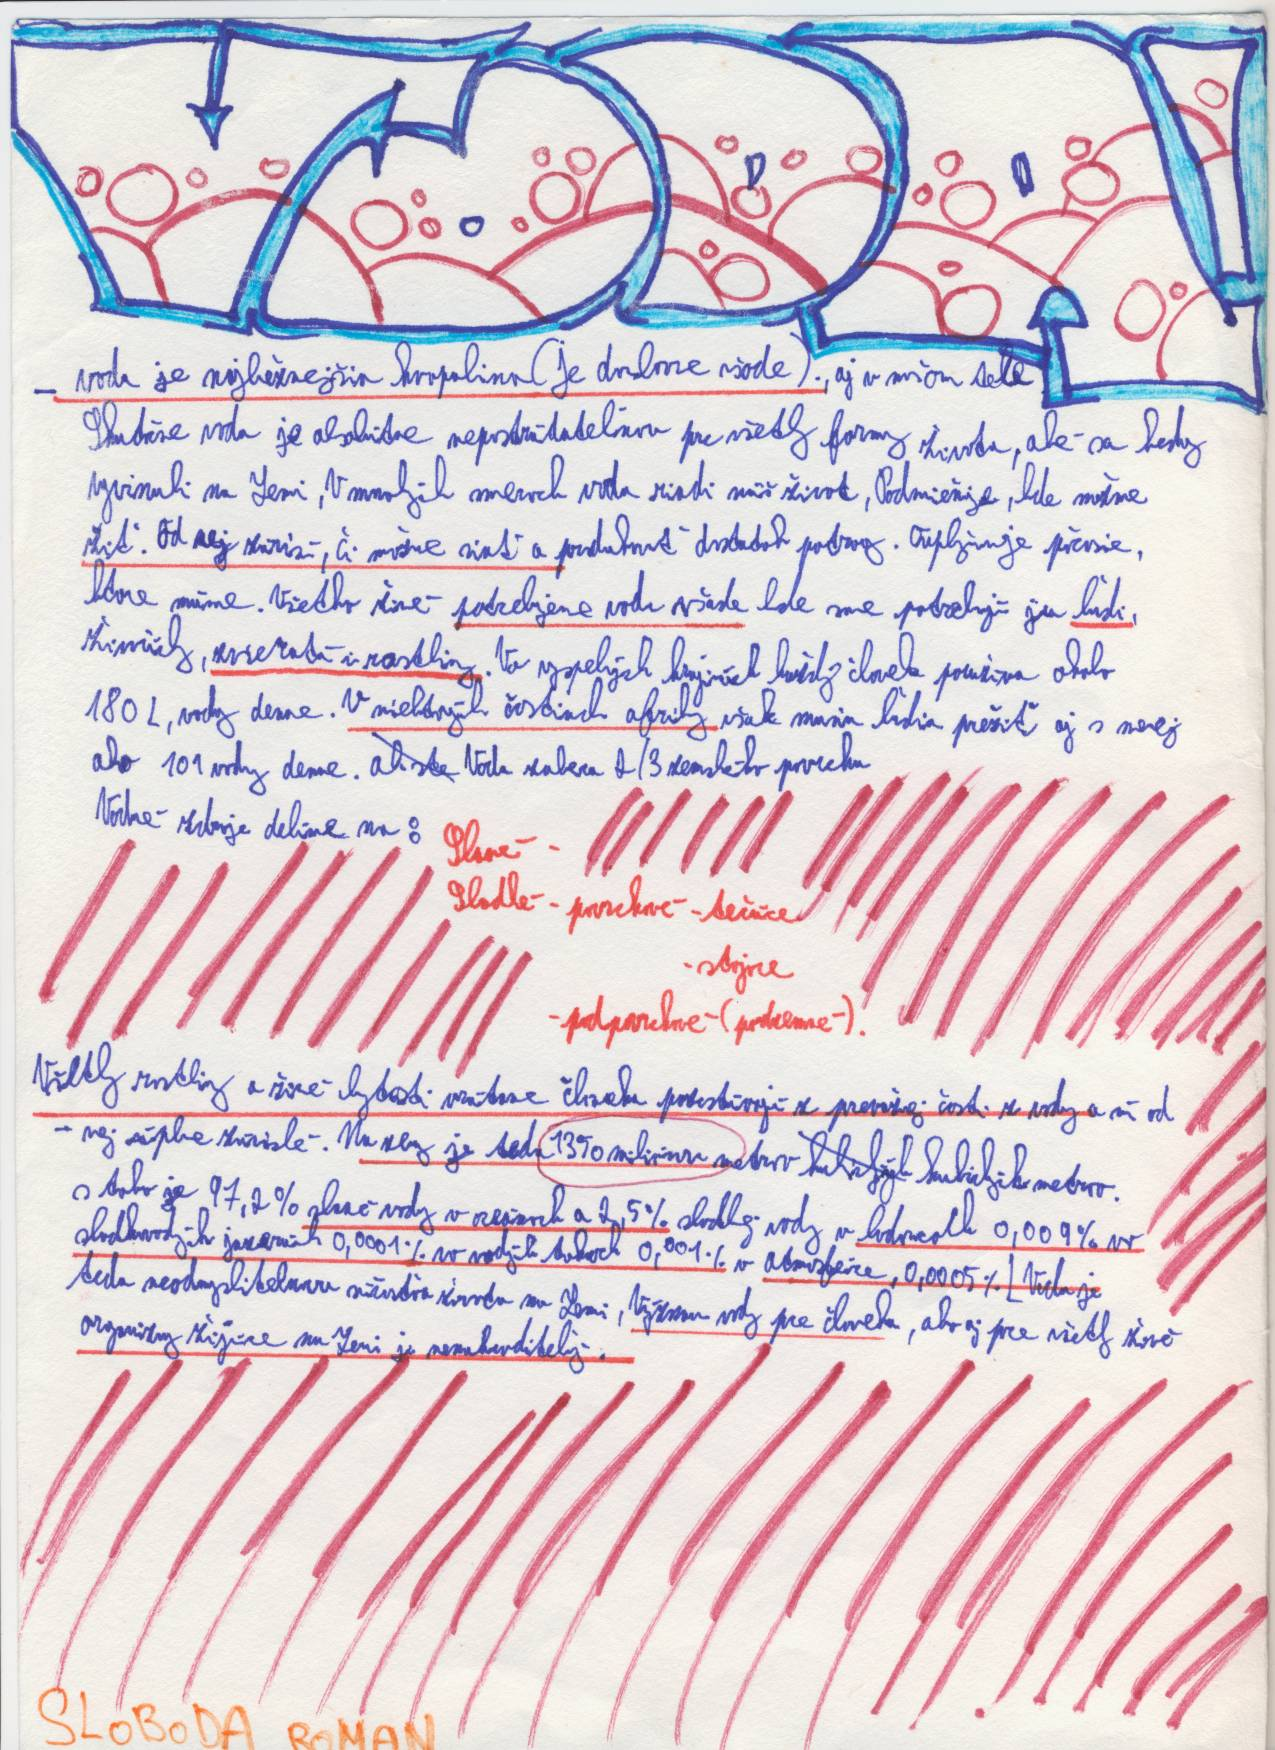 VODA
- voda je najbežnejšia kvapalina (je doslovne všade)., aj v našom tele
Skutočne voda je absolútne nepostrádateľnou pre všetky formy života, aké sa kedy
vyvinuli na Zemi, V mnohých smeroch voda riadi náš život, Podmieňuje, kde možme
žiť. Od nej závisí, či možme siať a produkovať dostatok potravy. Ovplyvňuje počasie,
ktoré máme. Všetko živé potrebujeme vodu všade kde sme potrebujú ju ľudi,
živočichy, zvieratá i rastliny. Vo vyspelých krajinách každý človek používa okolo
180 L, vody denne. V niektorých častiach afriky však musia ľudia prežiť aj s menej
ako 101 vody denne. Voda zaberá 2/3 zemského povrchu
Vodné zdroje delíme na:
Slané -
Sladké - povrchové - tečúce
- stojace
- podpovrchové - (podzemné).
Všetky rastliny a živé bytosti vrátane človeka pozostávajú z prevažnej časti z vody a sú od
- nej úplne závislé. Na zemy je teda 1390 miliónov metrov kubických metrov.
z toho je 97,2% slané vody v oceánoch a 2,5% sladkej vody v ľadovcoch 0,009% vo
sladkovodných jazerách 0,0001% vo vodných tokoch 0,001% v atmosfére, 0,0005% Voda je
teda neodmysliteľnou súčasťou života na Zemi, Význam vody pre človeka, ako aj pre všetky živé
organizmy žijúce na Zemi je nenahraditeľný.
SLOBODA ROMAN